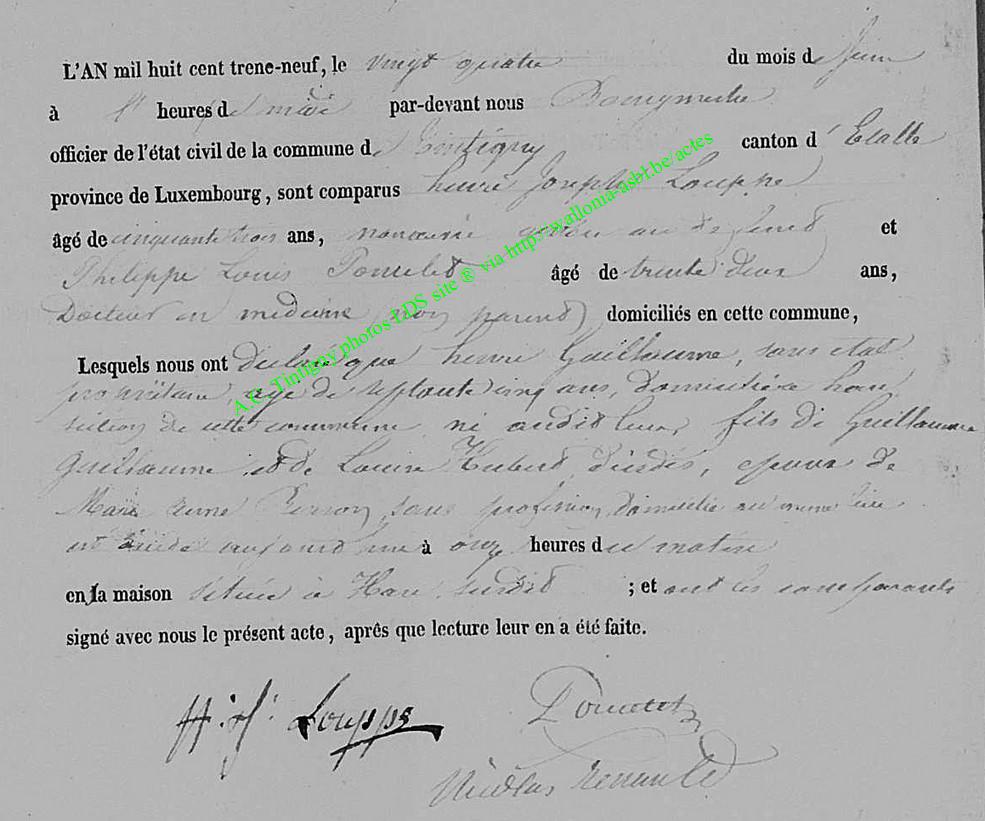 L'AN mil huit cent trene-neuf, le vingt quatre du mois de Juin
à heures de midi par-devant nous Bourgmestre
officier de l'état civil de la commune de Tintigny canton d'Etalle
province de Luxembourg, sont comparus henri Joseph Louppe
âgé de cinquante trois ans, du défunt et
Philippe Louis âgé de trente deux ans,
Docteur en médecine, non parent domiciliés en cette commune,
Lesquels nous ont déclaré que henri Guillaume, sans état
propriétaire, agé de septante cinq ans, domicilié à han
section de cette commune, né audit lieu, fils de Guillaume
Guillaume et de Louise Hubert dudit, époux de
Marie anne Pierson, sans profession, domiciliée au même lieu
est décédé aujourd'hui à onze heures du matin
en la maison située à Han susdit ; et ont les comparants
signé avec nous le présent acte, après que lecture leur en a été faite.
A.C. Tintigny photos LDS site ® via http://wallonia-asbl.be/actes
H. J. Louppe
Nicolas